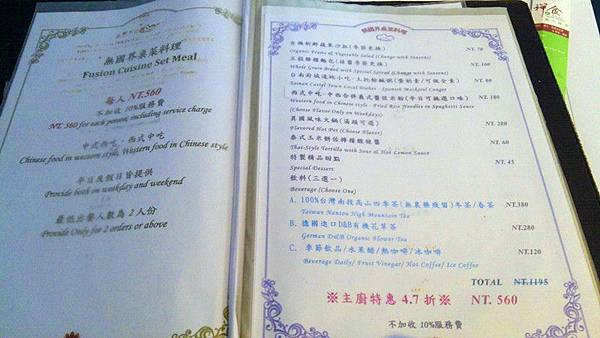 無國界桌菜料理
Fusion Cuisine Set Meal
每人 NT.560
不加收 10%服務費
NT. 560 for each person, including service charge
中式西吃．西式中吃
Chinese food in western style, Western food in Chinese style
平日及假日皆提供
Provide both on weekday and weekend
最低出餐人數為 2人份
Provide Only for 2 orders or above
無國界桌菜料理
有機新鮮蔬果沙拉(季節更換) NT. 70
Organic Fruits & Vegetable Salad (Change with Seasons)
NT. 100
Whole Grain Bread with Special Spread (Change with Season)
NT. 80
Tainan Castel Town Local Dishes - Spanish Maskgel Conger
NT. 180
Western food in Chinese style - Fried Rice Noodles in Spaghetti Sauce
(Choose Flavor Only on Weekdays)
異國風味火鍋(湯頭可選) NT. 280
Flavored Hot Pot (Choose Flavor)
泰式玉米餅佐檸檬酸辣醬 NT. 60
Thai-Style Tortilla with Sour & Hot Lemon Sauce
特製精品甜點 NT. 45
Special Dessert
飲料(三選一)
Beverage (Choose One)
A. 100%台灣南投高山四季茶(無農藥殘留)冬茶/春茶 NT.380
Taiwan Nantou High Mountain Tea
B. 德國進口D&B有機花草茶 NT.280
German D&B Organic Flower Tea
C. 季節飲品/水果醋/熱咖啡/冰咖啡 NT.120
Beverage Daily/ Fruit Vinegar/ Hot Coffee/ Ice Coffee
TOTAL NT.1195
※主廚特惠 4.7 折※ NT. 560
不加收 10%服務費